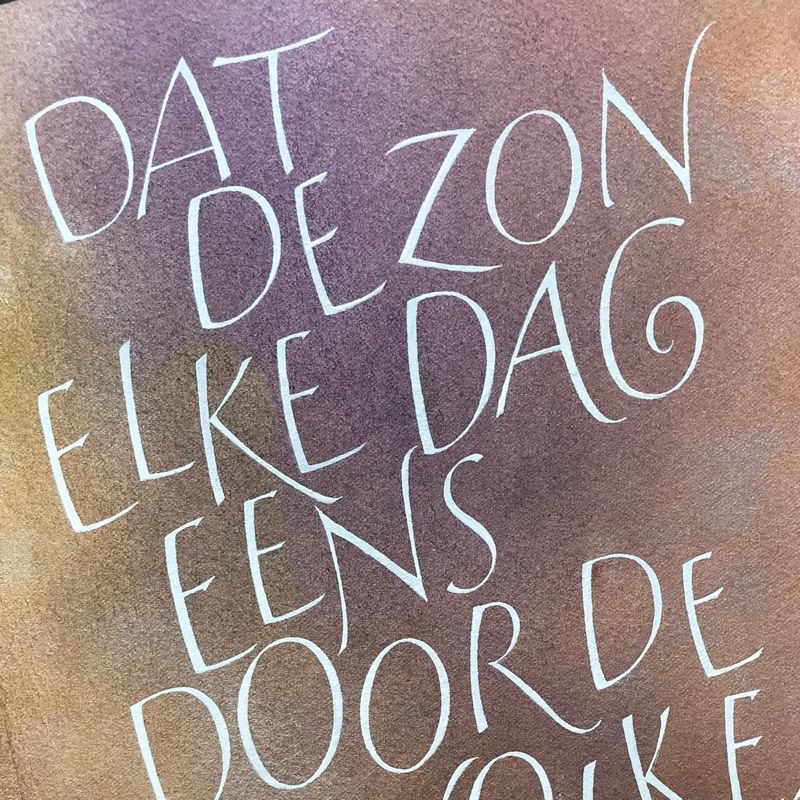 DAT
DE ZON
ELKE DAG
EENS
DOOR DE